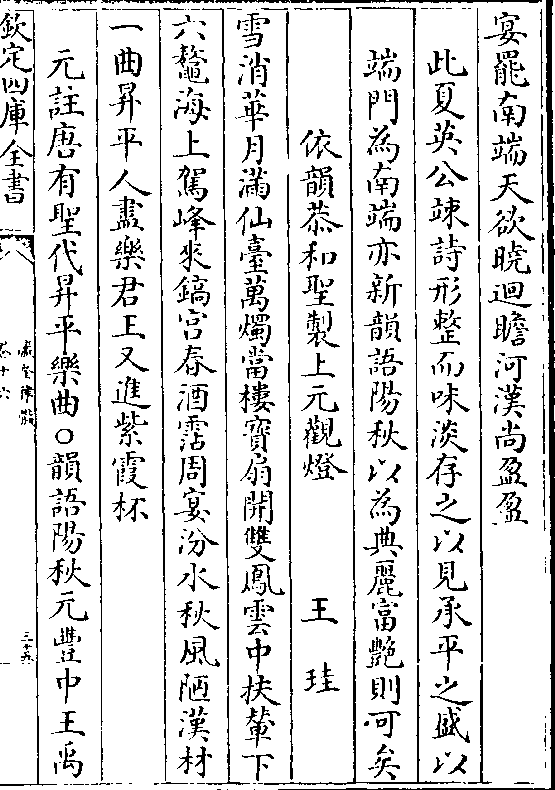 宴罷南端天欲曉迴瞻河漢尚盈盈
此夏英公竦詩形整而味淡存之以見承平之盛以
端門為南端亦新韻語陽秋以為典麗富艶則可矣
依韻恭和聖製上元觀燈　王珪
雪消華月滿仙臺萬燭當樓寳扇開雙鳳雲中扶輦下
六鼇海上駕峰來鎬宫春酒霑周宴汾水秋風陋漢材
一曲昇平人盡樂君王又進紫霞杯
元註唐有聖代昇平樂曲○韻語陽秋元豐中王禹
欽定四庫全書
瀛奎律髓
卷十六
三十五